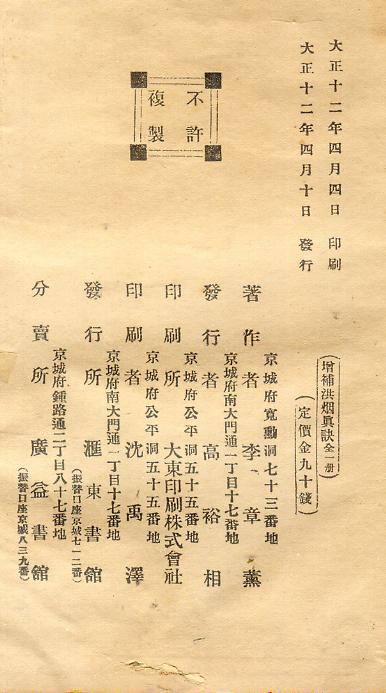 大正十二年四月四日 印刷
大正十二年四月十日 發行
不許
複製
增補洪烟眞訣全一册
(定價金九十錢)
京城府寬勳洞七十三番地
著作者 李章薰
京城府南大門通一丁目十七番地
發行者 高裕相
京城府公平洞五十五番地
印刷所 大東印刷株式會社
京城府公平洞五十五番地
印刷者 沈禹澤
京城府南大門通一丁目十七番地
發行所 滙東書館
(振替口座京城七一二番)
京城府鍾路通二丁目八十七番地
分賣所 廣益書館
(振替口座京城八三九番)